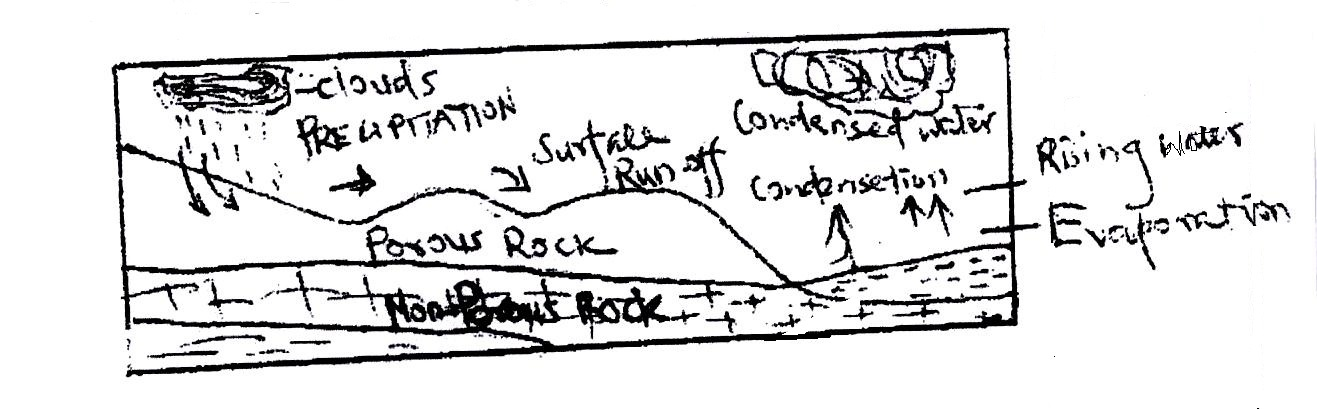 clouds
PRECIPITATION
Surface
Run off
Condensed water
Condensetion
Rising water
Evaporation
Porous Rock
Non Porous Rock